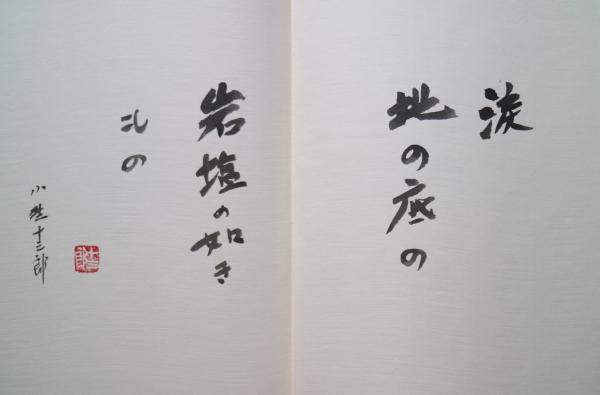 涙
地の底の
岩塩の如き
もの
小野十三郎